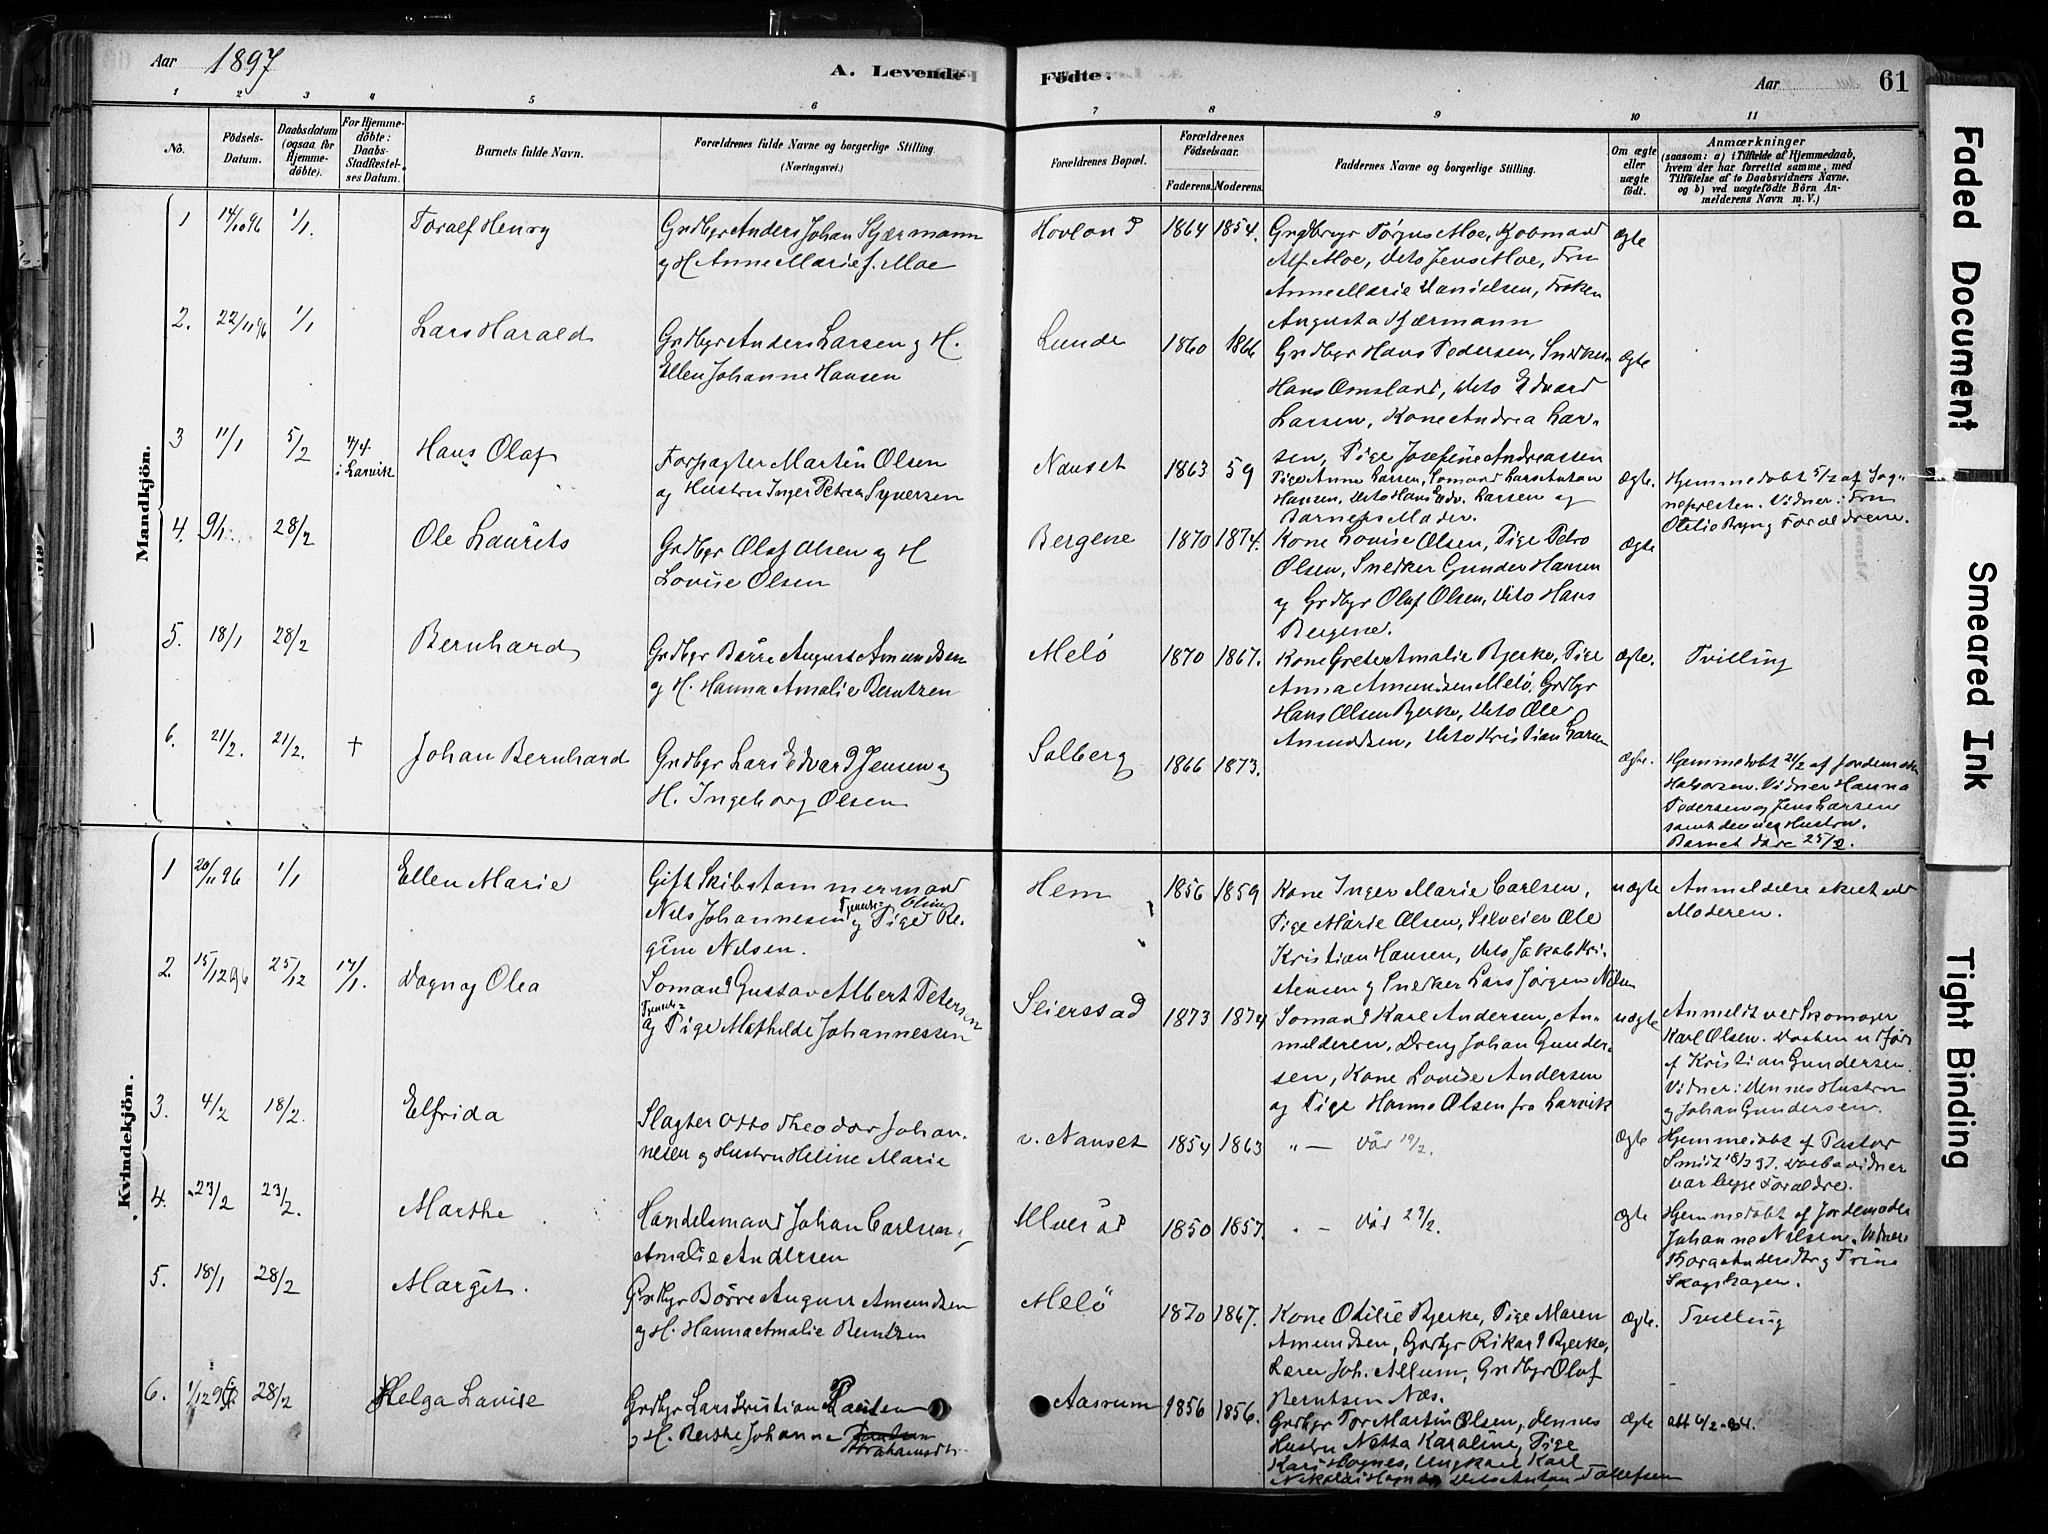 Aar 1897
A. Levende Födte.
Aar
61
1 2 3 4 5 6 7 8 9 10 11
No.
Födsels-
Datum.
Daabsdatum
(ogsaa for
Hjemme-
döbte).
For Hjemme-
döbte:
Daabs-
Stadfæstel-
ses Datum.
Barnets fulde Navn.
Forældrenes fulde Navne og borgerlige Stilling.
(Næringsvei.)
Forældrenes Bopæl.
Forældrenes
Födselsaar.
Faderens. Moderens.
Faddernes Navne og borgerlige Stilling.
Om ægte
eller
uægte
födt.
Anmærkninger
(saasom: a) i Tilfælde af Hjemmedaab,
hvem der har forrettet samme, med
Tilföielse af to Daabsvidners Navne.
og b) ved uægtefödte Börn An-
melderens Navn m. V.)
Mandkjön.
1 14/10 96 1/1. Toralf Henry
Grdbgr Anders Johan Skjærmann
og H. Anne Marie f. Moe
Hovland 1864 1854.
Grdbrgr Törgus Moe, Kjöbmand
Alf Moe, Dito Jens Moe, Fru
Anne Marie Danielsen, Fröken
Augusta Kjærmann
ægte
2. 22/11 96 1/1 Lars Harald
Grdbgr Anders Larsen og H.
Ellen Johanne Hansen
Lunde 1860 1866
Grdbgr Hans Pedersen, Snedker
Hans Omsland, Dito Edvard
Larsen, Kone Andrea Lar-
sen, Pige Josefine Andreassen
ægte
3 11/1 5/2 4/4 i Larvik Hans Olaf
Forpagter Martin Olsen
og Hustru Inger Petrea Syversen
Nanset 1863 59
Pige Anna Larsen, Sömand Lars Anton
Hansen, Dito Hans Edv. Larsen og
Barnets Moder.
ægte.
Hjemmedöbt 5/2 af Sog-
nepresten. Vidner: Fru
Otilie Bryn og Forældrene.
4. 9/1. 28/2 Ole Laurits
Grdbgr Olaf Olsen og H
Lovise Olsen
Bergene 1870 1874.
Kone Lovise Olsen, Pige Petra
Olsen, Snedker Gunder Hansen
og Grdbgr Oluf Olsen, Dito Hans
Bergene.
ægte
5. 18/1 28/2 Bernhard
Grdbgr Börre August Amundsen
og H. Hanna Amalie Berntzen
Melö 1870 1867.
Kone Grete Amalie Bjerke, Pige
Anna Amundsen Melö, Grdbgr
Hans Olsen Bjerke, Dito Ole
Amundsen, Dito Kristian Larsen
ægte.
Tvilling
6. 21/2. 21/2. † Johan Bernhard
Grdbgr Lars Edvard Jensen og
H. Ingeborg Olsen
Solberg 1866 1873.
ægte.
Hjemmedöbt 21/2 af Jordemoder
Halvorsen. Vidner Hanna
Pedersen og Jens Larsen
samt dennes Hustru.
Barnet döde 25/2.
Kvindekjön.
1 20/11 96 1/1 Ellen Marie
Gift Skibstømmermand
Nils Johannesen og Tjeneste- Pige Oline Re-
gine Nilsen.
Hem 1856 1859
Kone Inger Marie Carlsen,
Pige Marie Olsen, Selveier Ole
Kristian Hansen, Dito Jakob Kri-
stensen og Snedker Lars Jörgen Nilsen
uægte
Anmeldelse skeet ved
Moderen.
2. 15/12 96 25/12 17/1. Dagny Olea
Sömand Gustav Albert Petersen
og Tjeneste- Pige Mathilde Johannessen
Seierstad 1873 1874
Sömand Karl Andersen, An-
melderen, Dreng Johan Gunder-
sen, Kone Lovise Andersen
og Pige Hanna Olsen fra Larvik
uægte
Anmeldt ved Skomager
Karl Olsen. Daaben udfört
af Kristian Gundersen.
Vidner: dennes Hustru
og Johan Gundersen.
3. 4/2 18/2. Elfrida
Slagter Otto Theodor Johan-
nesen og Hustru Heline Marie
v. Nanset 1854 1863
" — Död 19/2.
ægte
Hjemmedöbt af Pastor
Smidt 18/2 97. Daabsvidner
var begge Forældre.
4. 23/2 23/2. Marthe
Handelsmand Johan Carlsen og
Amalie Andersen
Hverud 1850 1857.
" — Död 27/2.
ægte
Hjemmedöbt af Jordemoder
Johanne Nilsen. Vidnere
Borg Anders Borg Trine
Skogshagen.
5. 18/1 28/2 Margit.
Grdbgr Börre August Amundsen
og H. Hanna Amalie Berntzen
Melö 1870 1867.
Kone Otilie Bjerke, Pige Maren
Amundsen, Grdbgr Rikard Bjerke,
Lærer Joh. Allum, Grdbgr Olaf
Berntsen Næs.
ægte.
Tvilling
6. 1/12 96 28/2 Helga Lovise
Grdbgr Lars Kristian Paulsen
og H. Berthe Johanne Abrahamsdtr.
Aasrum 1856 1856.
Grdbgr Tor Martin Olsen, dennes
Hustru Netta Karoline, Pige
Kari Hognes, Ungkarl Karl
Nikolai Hognes, Dito Anton Tollefsen
ægte
att 4/2-04.
Faded Document
Smeared Ink
Tight Binding